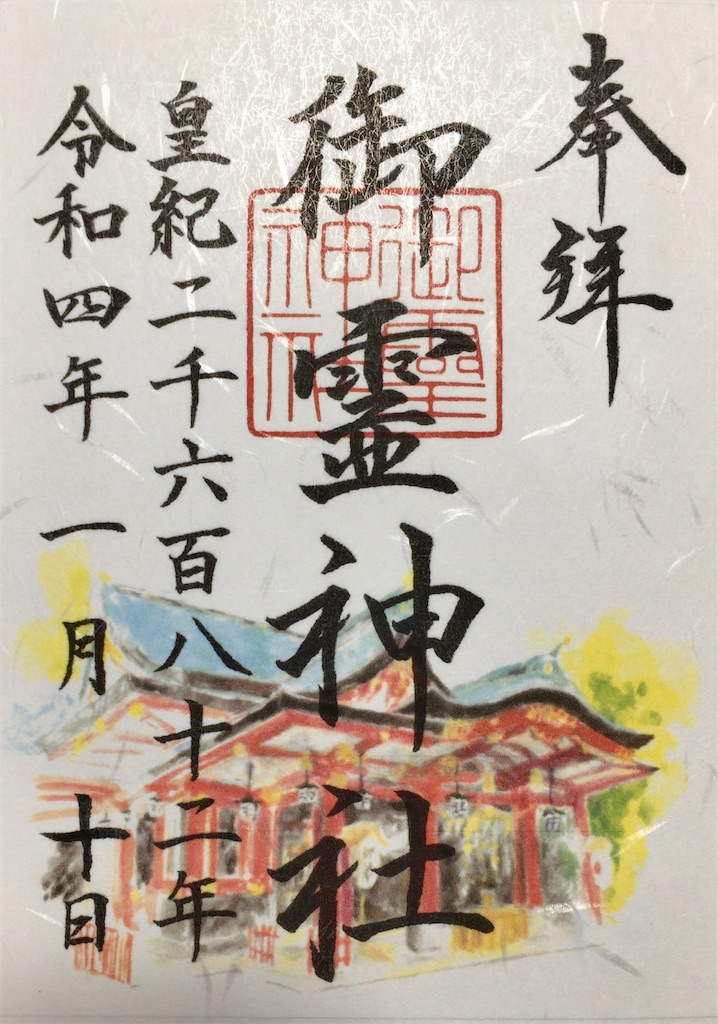 奉拝
御霊神社
御霊神社
皇紀二千六百八十二年
令和四年 一月 十日